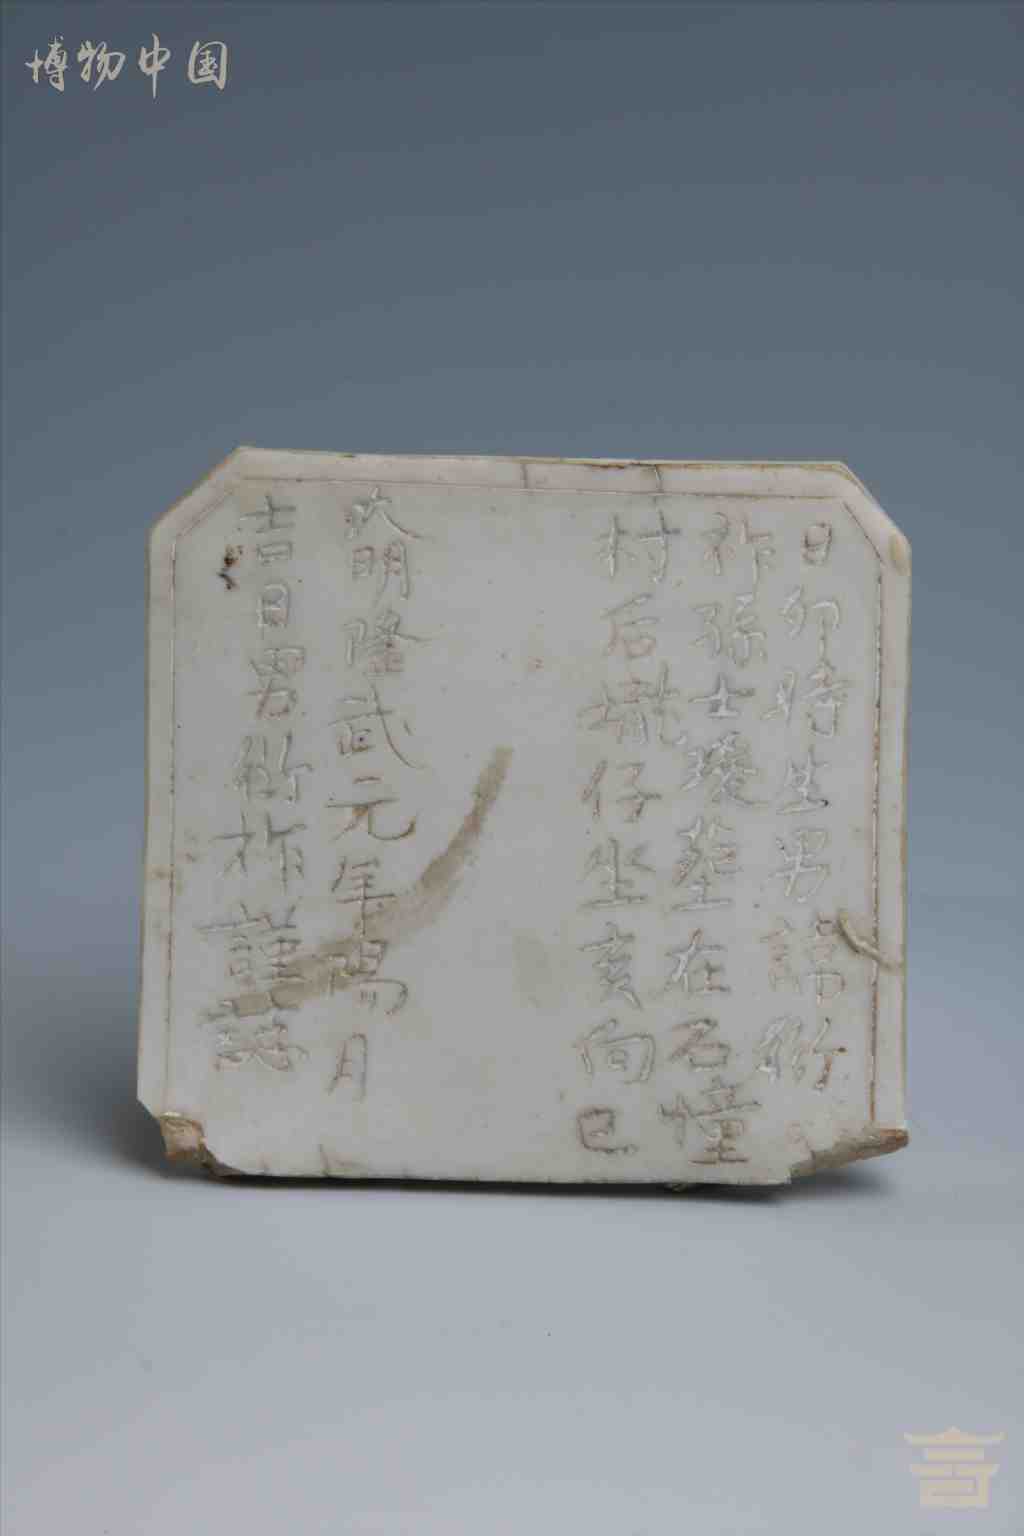 博物中国
日卯時生男諱衍
祚孫士瓊塟在石憧
村后壠仔坐亥向巳
大明隆武元年陽月
吉日男衍祚謹誌